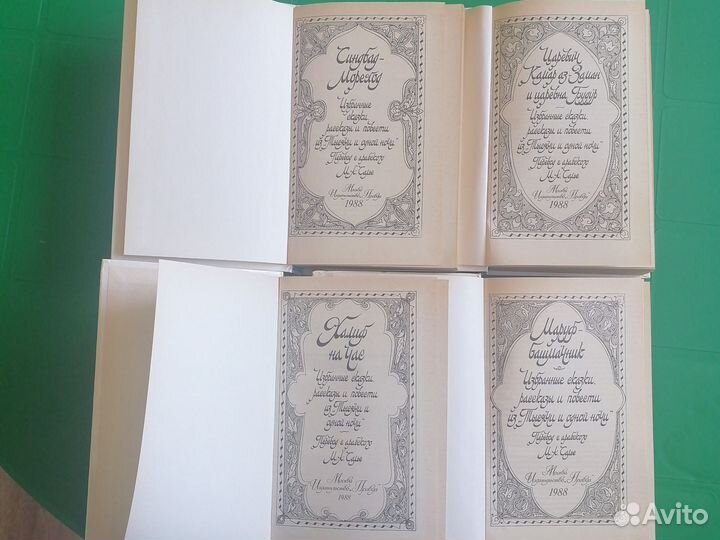 Синдбад-
Мореход
Избранные
сказки,
рассказы и повести
из „Тысячи и одной ночи“
Перевод с арабского
М. А. Салье
Москва
Издательство „Правда“
1988
Царевич
Камар аз-Заман
и царевна Будур
Избранные сказки,
рассказы и повести
из „Тысячи и одной ночи“
Перевод с арабского
М. А. Салье
Москва
Издательство „Правда“
1988
Халиф
на час
Избранные сказки,
рассказы и повести
из „Тысячи и
одной ночи“
Перевод с арабского
М. А. Салье
Москва
Издательство „Правда“
1988
Маруф-
башмачник
Избранные сказки,
рассказы и повести
из „Тысячи и одной ночи“
Перевод с арабского
М. А. Салье
Москва
Издательство „Правда“
1988
Avito